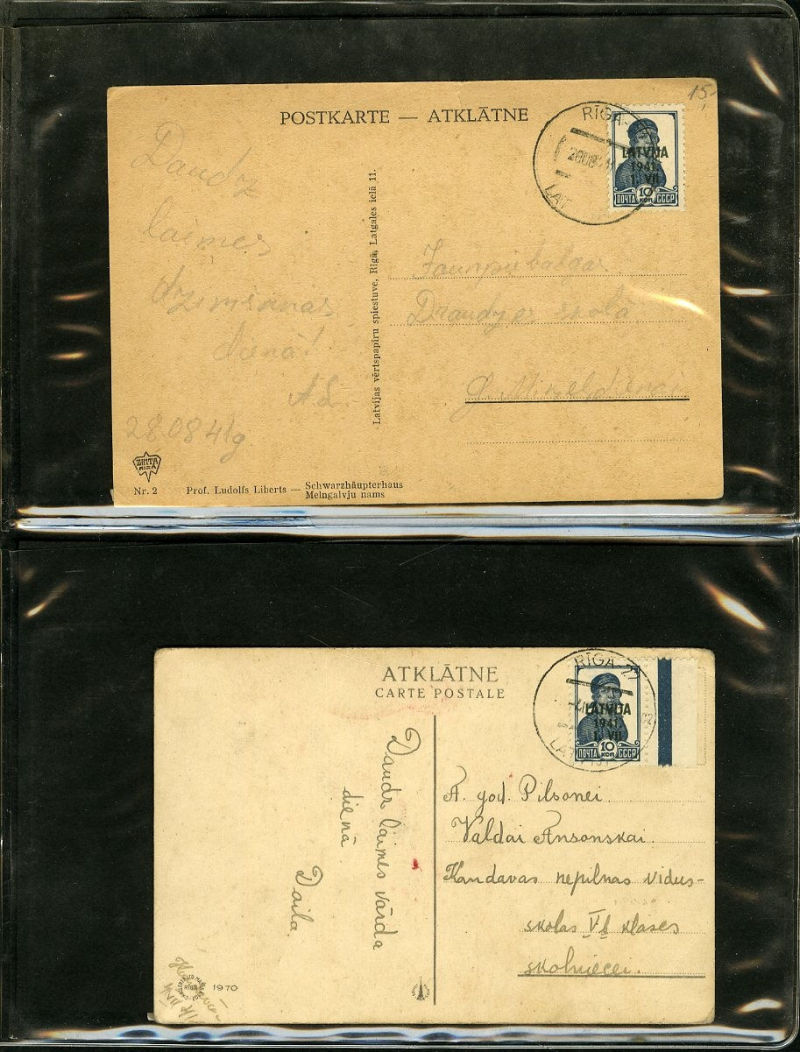 POSTKARTE — ATKLĀTNE
15
RĪGA
LAT
LATVIJA
1941
1. VII
10
ПОЧТА КОП СССР
Daudz
laimes
dzimšanas
dienā!
A.L.
28.08 41g
Latvijas vērtspapīru spiestuve, Rīgā, Latgales ielā 11.
Draudzes skolā
ZINTA
RIGA
Nr. 2 Prof. Ludolfs Liberts — Schwarzhäupterhaus
Melngalvju nams
ATKLĀTNE
CARTE POSTALE
RĪGA
LATVIJA
1941
1. VII
10
ПОЧТА КОП СССР
Daudz laimes vārda
dienā.
Daila.
A. god. Pilsonei
Valdai Ansonskai.
Kandavas nepilnas vidus-
skolas V b klases
skolniecei.
1970